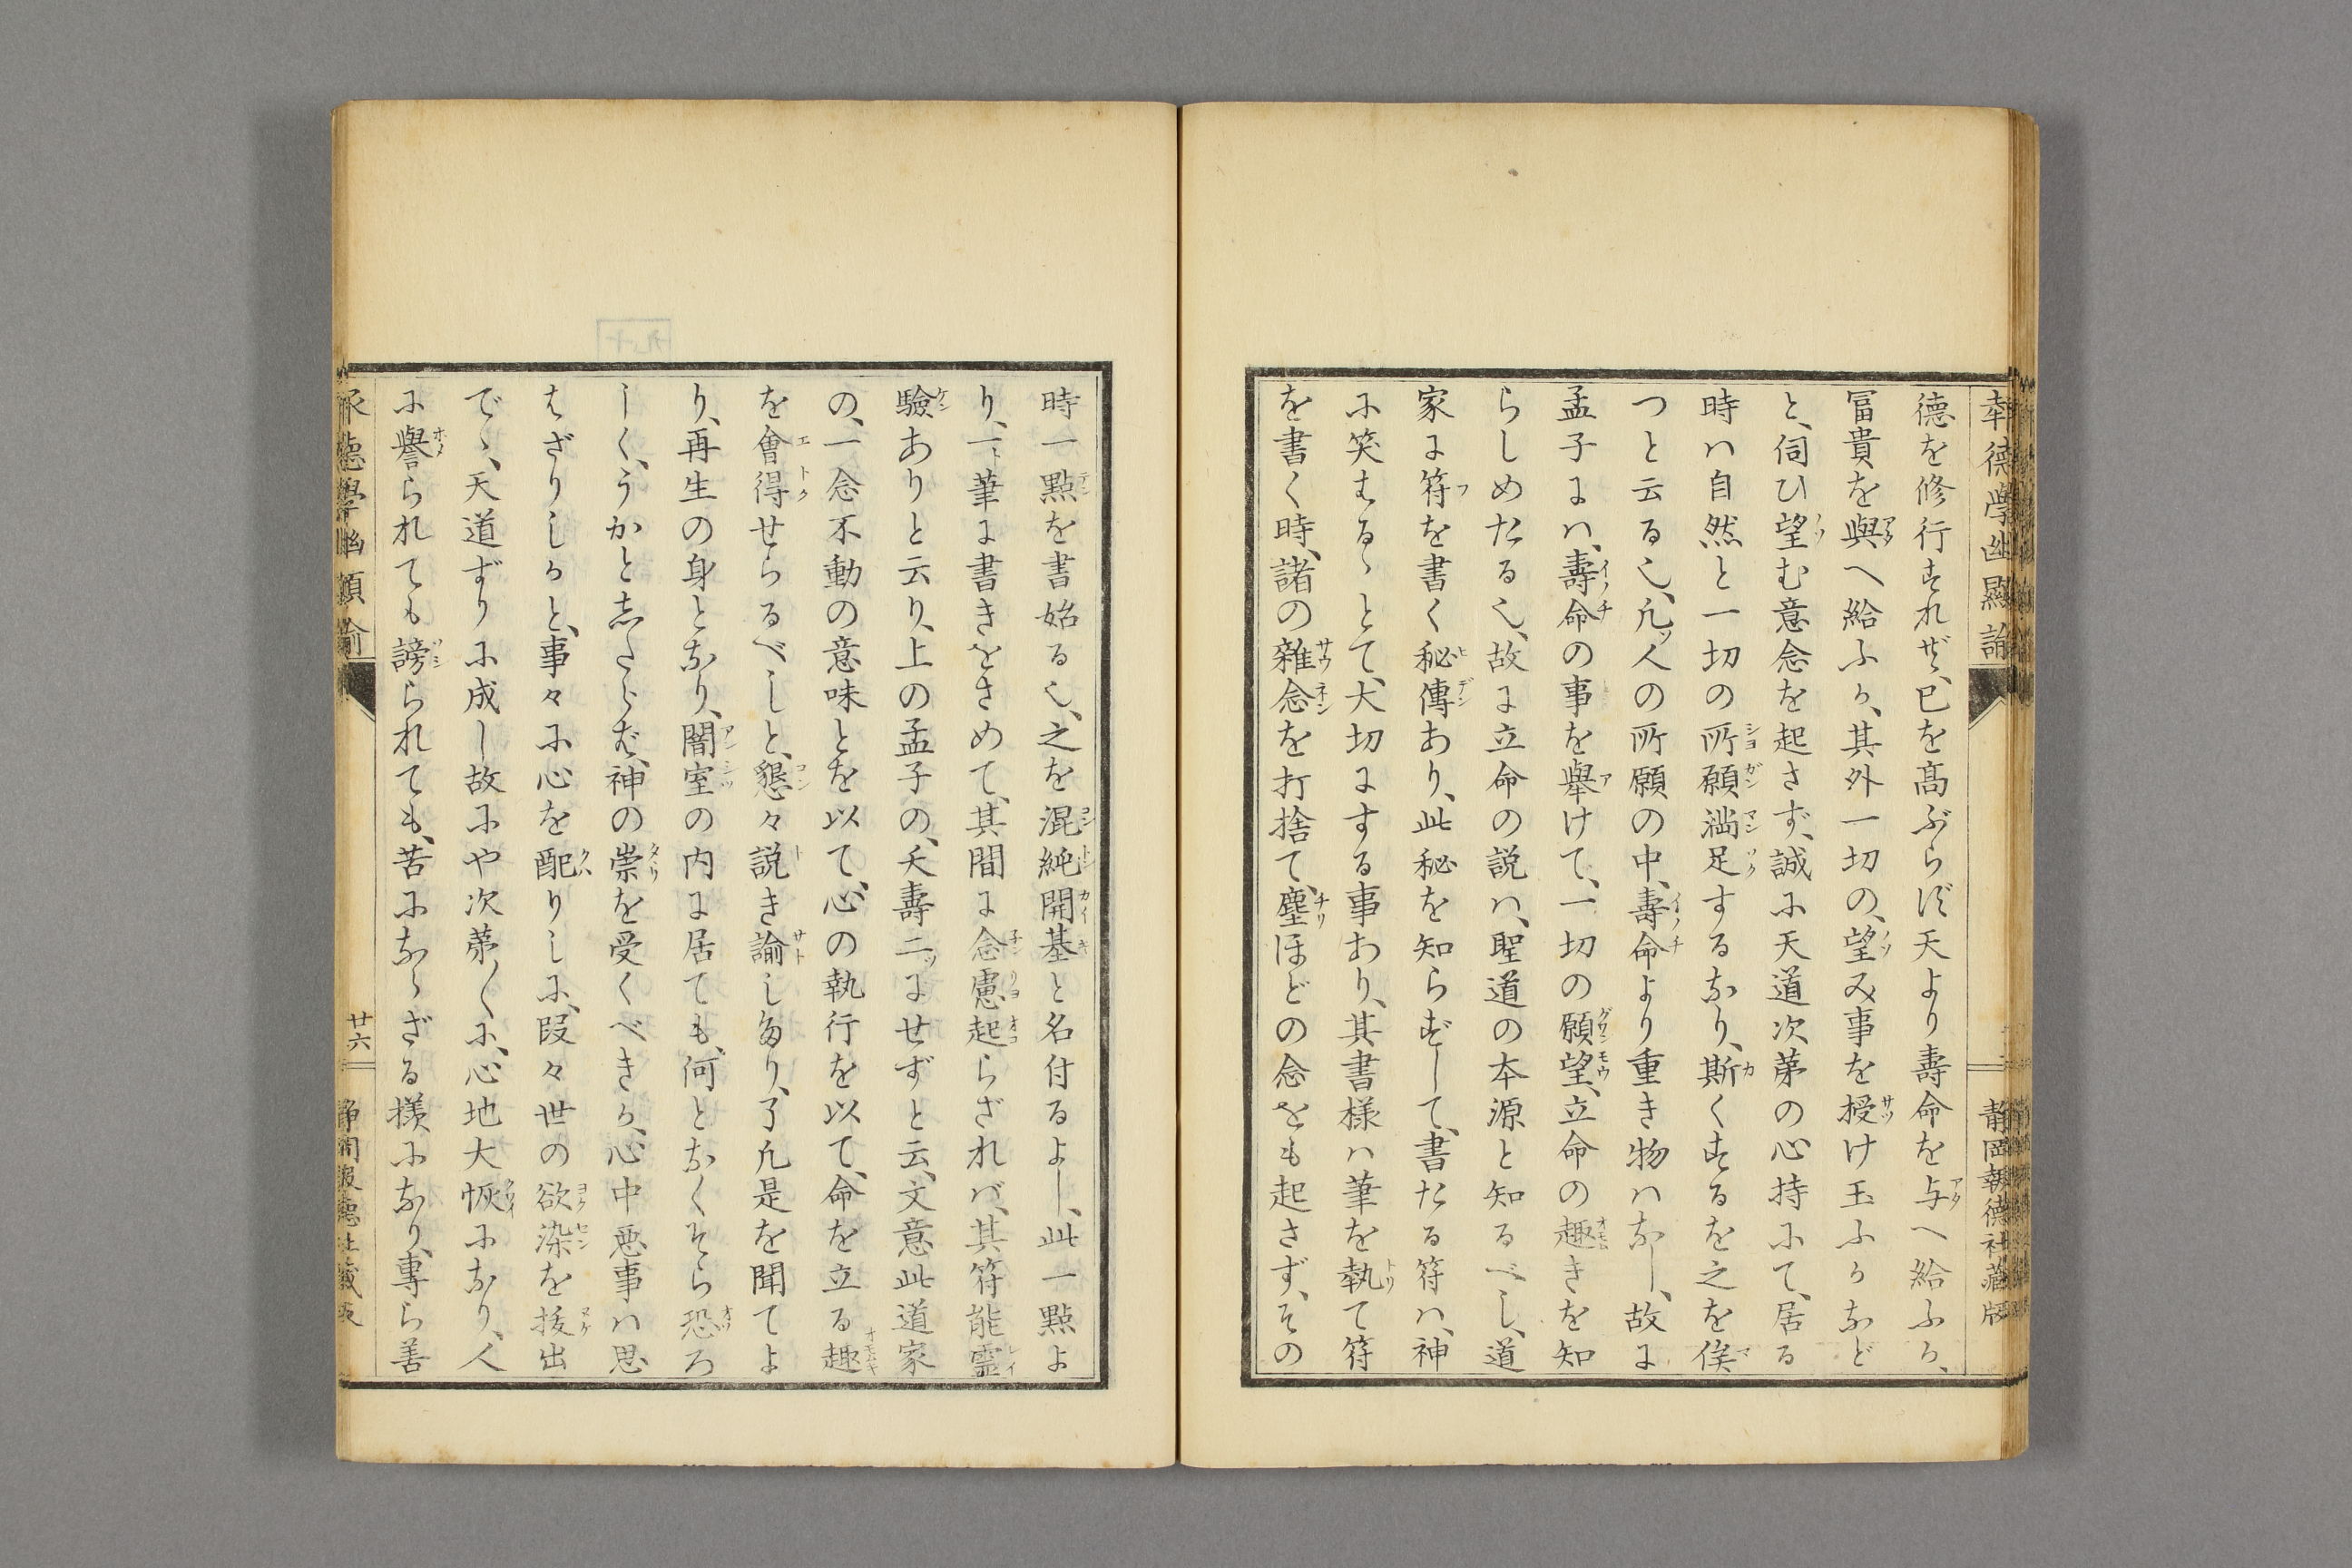 奉徳學幽顯諭
静岡報徳社藏版
德を修行すれども、已を髙ぶらバ天より壽命を与へ給ふか、
冨貴を與へ給ふか、其外一切の、望み事を授け玉ふかなど
と、伺ひ望む意念を起さず、誠に天道次苐の心持にて、居る
時ハ自然と一切の所願滿足するなり、斯くするを之を俟
つと云る也、凡ッ人の所願の中、壽命より重き物ハなし、故に
孟子にハ、壽命の事を擧けて、一切の願望、立命の趣きを知
らしめたる也、故に立命の説ハ、聖道の本源と知るべし、道
家に符を書く秘傳あり、此秘を知らずして、書たる符ハ、神
に笑はるゝとて、大切にする事あり、其書樣ハ筆を執て符
を書く時、諸の雜念を打捨て、塵ほどの念をも起さず、その
時一點を書始る也、之を混純開基と名付るよし、此一點よ
り、一筆に書きをさめて、其間に念慮起らざれバ、其符能霊
驗ありと云り、上の孟子の、夭壽二ッにせずと云、文意此道家
の、一念不動の意味とを以て、心の執行を以て、命を立る趣
を會得せらるべしと、懇々説き諭し多り、了凡是を聞てよ
り、再生の身となり、闇室の内に居ても、何となくそら恐ろ
しく、うかと志たらバ、神の祟を受くべきか、心中悪事ハ思
はざりしかと、事々に心を配りしに、段々世の欲染を抜出
でゝ、天道ずりに成し故にや次苐〱に、心地大恢になり、人
に譽られても謗られても、苦にならざる様になり、專ら善
廿六